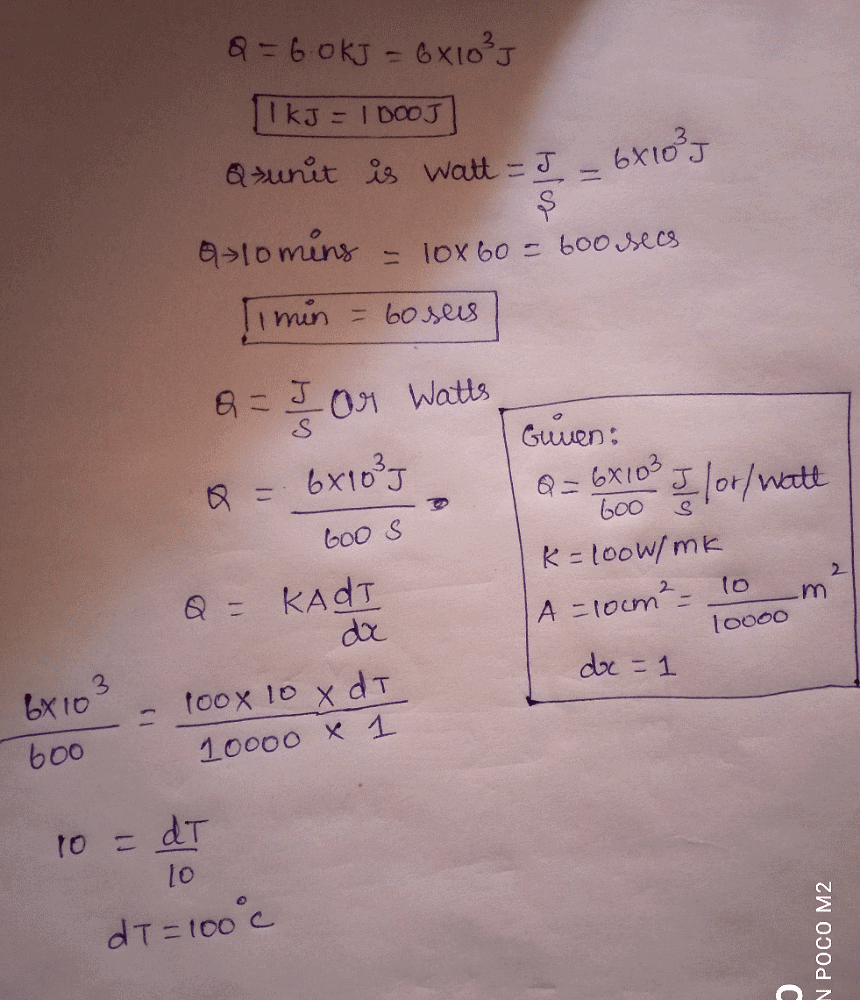 Q = 6.0KJ = 6×10³J
1KJ = 1000J
Q→unit is watt = J/S = 6×10³J
Q→10mins = 10×60 = 600secs
1min = 60secs
Q = J/S Or Watts
Q = 6×10³J / 600 S
Q = KA dT/dx
6×10³/600 = 100×10×dT / 10000×1
10 = dT/10
dT=100°c
Given:
Q = 6×10³/600 J/S /or/watt
K = 100W/mK
A = 10cm² = 10/10000 m²
dx = 1
N POCO M2